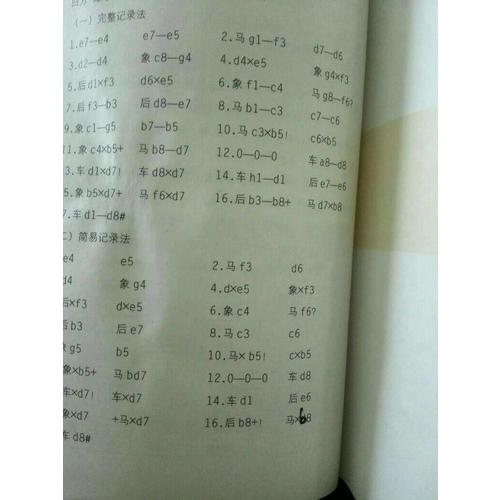 (一) 完整记录法
1.e7—e4 e7—e5 2.马 g1—f3 d7—d6
3.d2—d4 象 c8—g4 4.d4×e5 象 g4×f3
5.后 d1×f3 d6×e5 6.象 f1—c4 马 g8—f6?
7.后 f3—b3 后 d8—e7 8.马 b1—c3 c7—c6
9.象 c1—g5 b7—b5 10.马 c3×b5! c6×b5
11.象 c4×b5+ 马 b8—d7 12.0—0—0 车 a8—d8
3.车 d1×d7! 车 d8×d7 14.车 h1—d1 后 e7—e6
5.象 b5×d7+ 马 f6×d7 16.后 b3—b8+ 马 d7×b8
7.车 d1—d8#
二) 简易记录法
e4 e5 2.马 f3 d6
d4 象 g4 4.d×e5 象×f3
后×f3 d×e5 6.象 c4 马 f6?
后 b3 后 e7 8.马 c3 c6
象 g5 b5 10.马× b5! c×b5
象×b5+ 马 bd7 12.0—0—0 车 d8
车×d7! 车×d7 14.车 d1 后 e6
象×d7 +马×d7 16.后 b8+! 马×b8
车 d8#